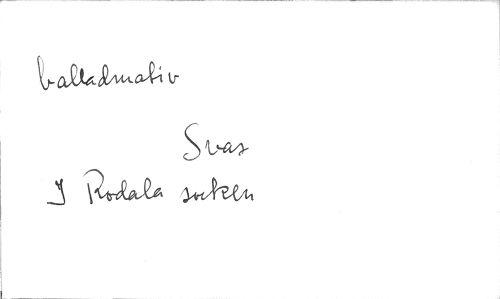 balladmotiv
Svar
I Rodala socken